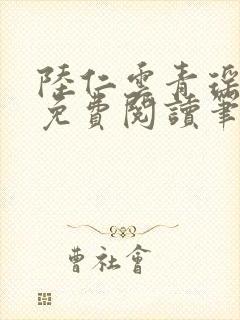 陸仁雲青瑤
免費閱讀筆
曹社會